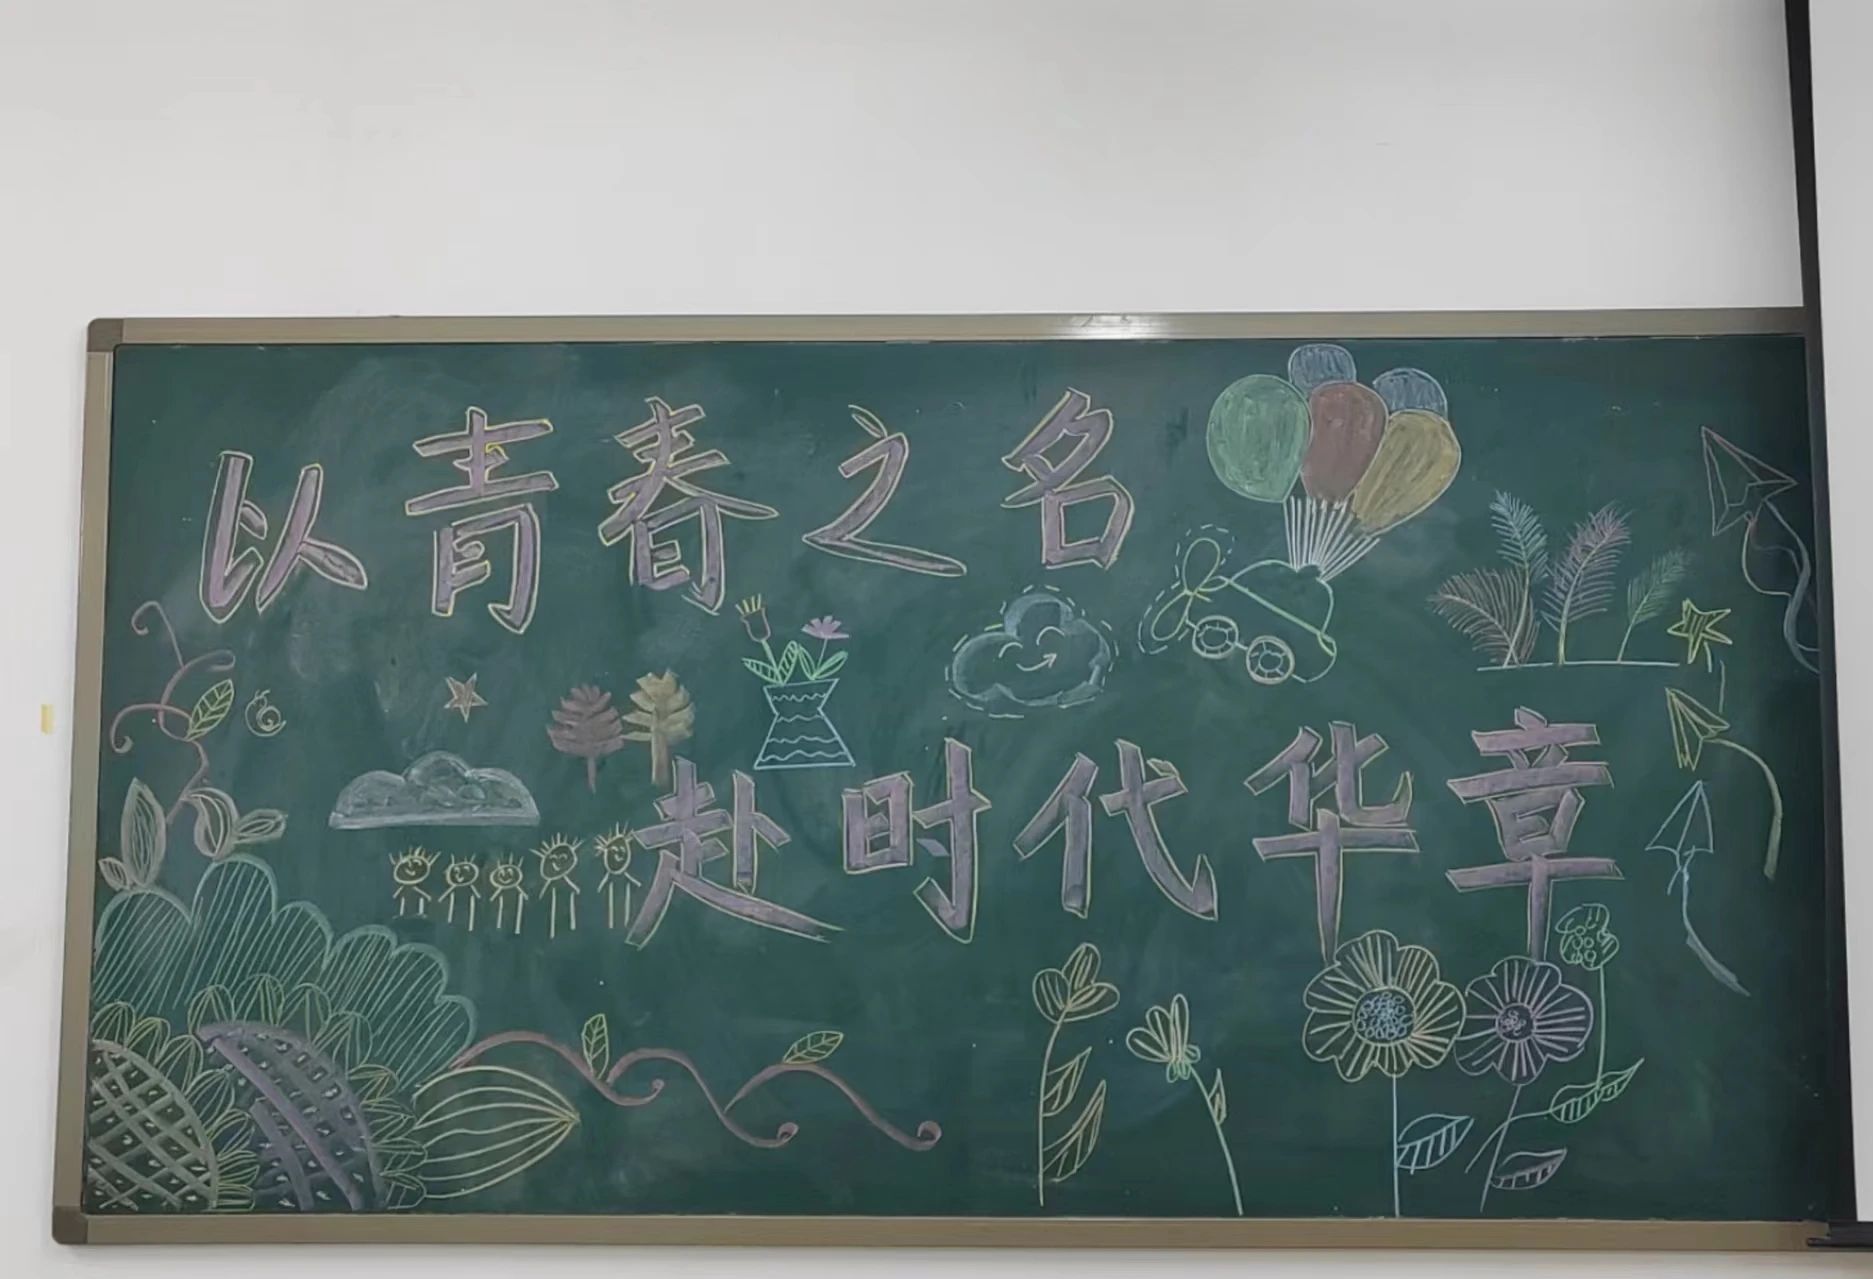 以青春之名
赴时代华章